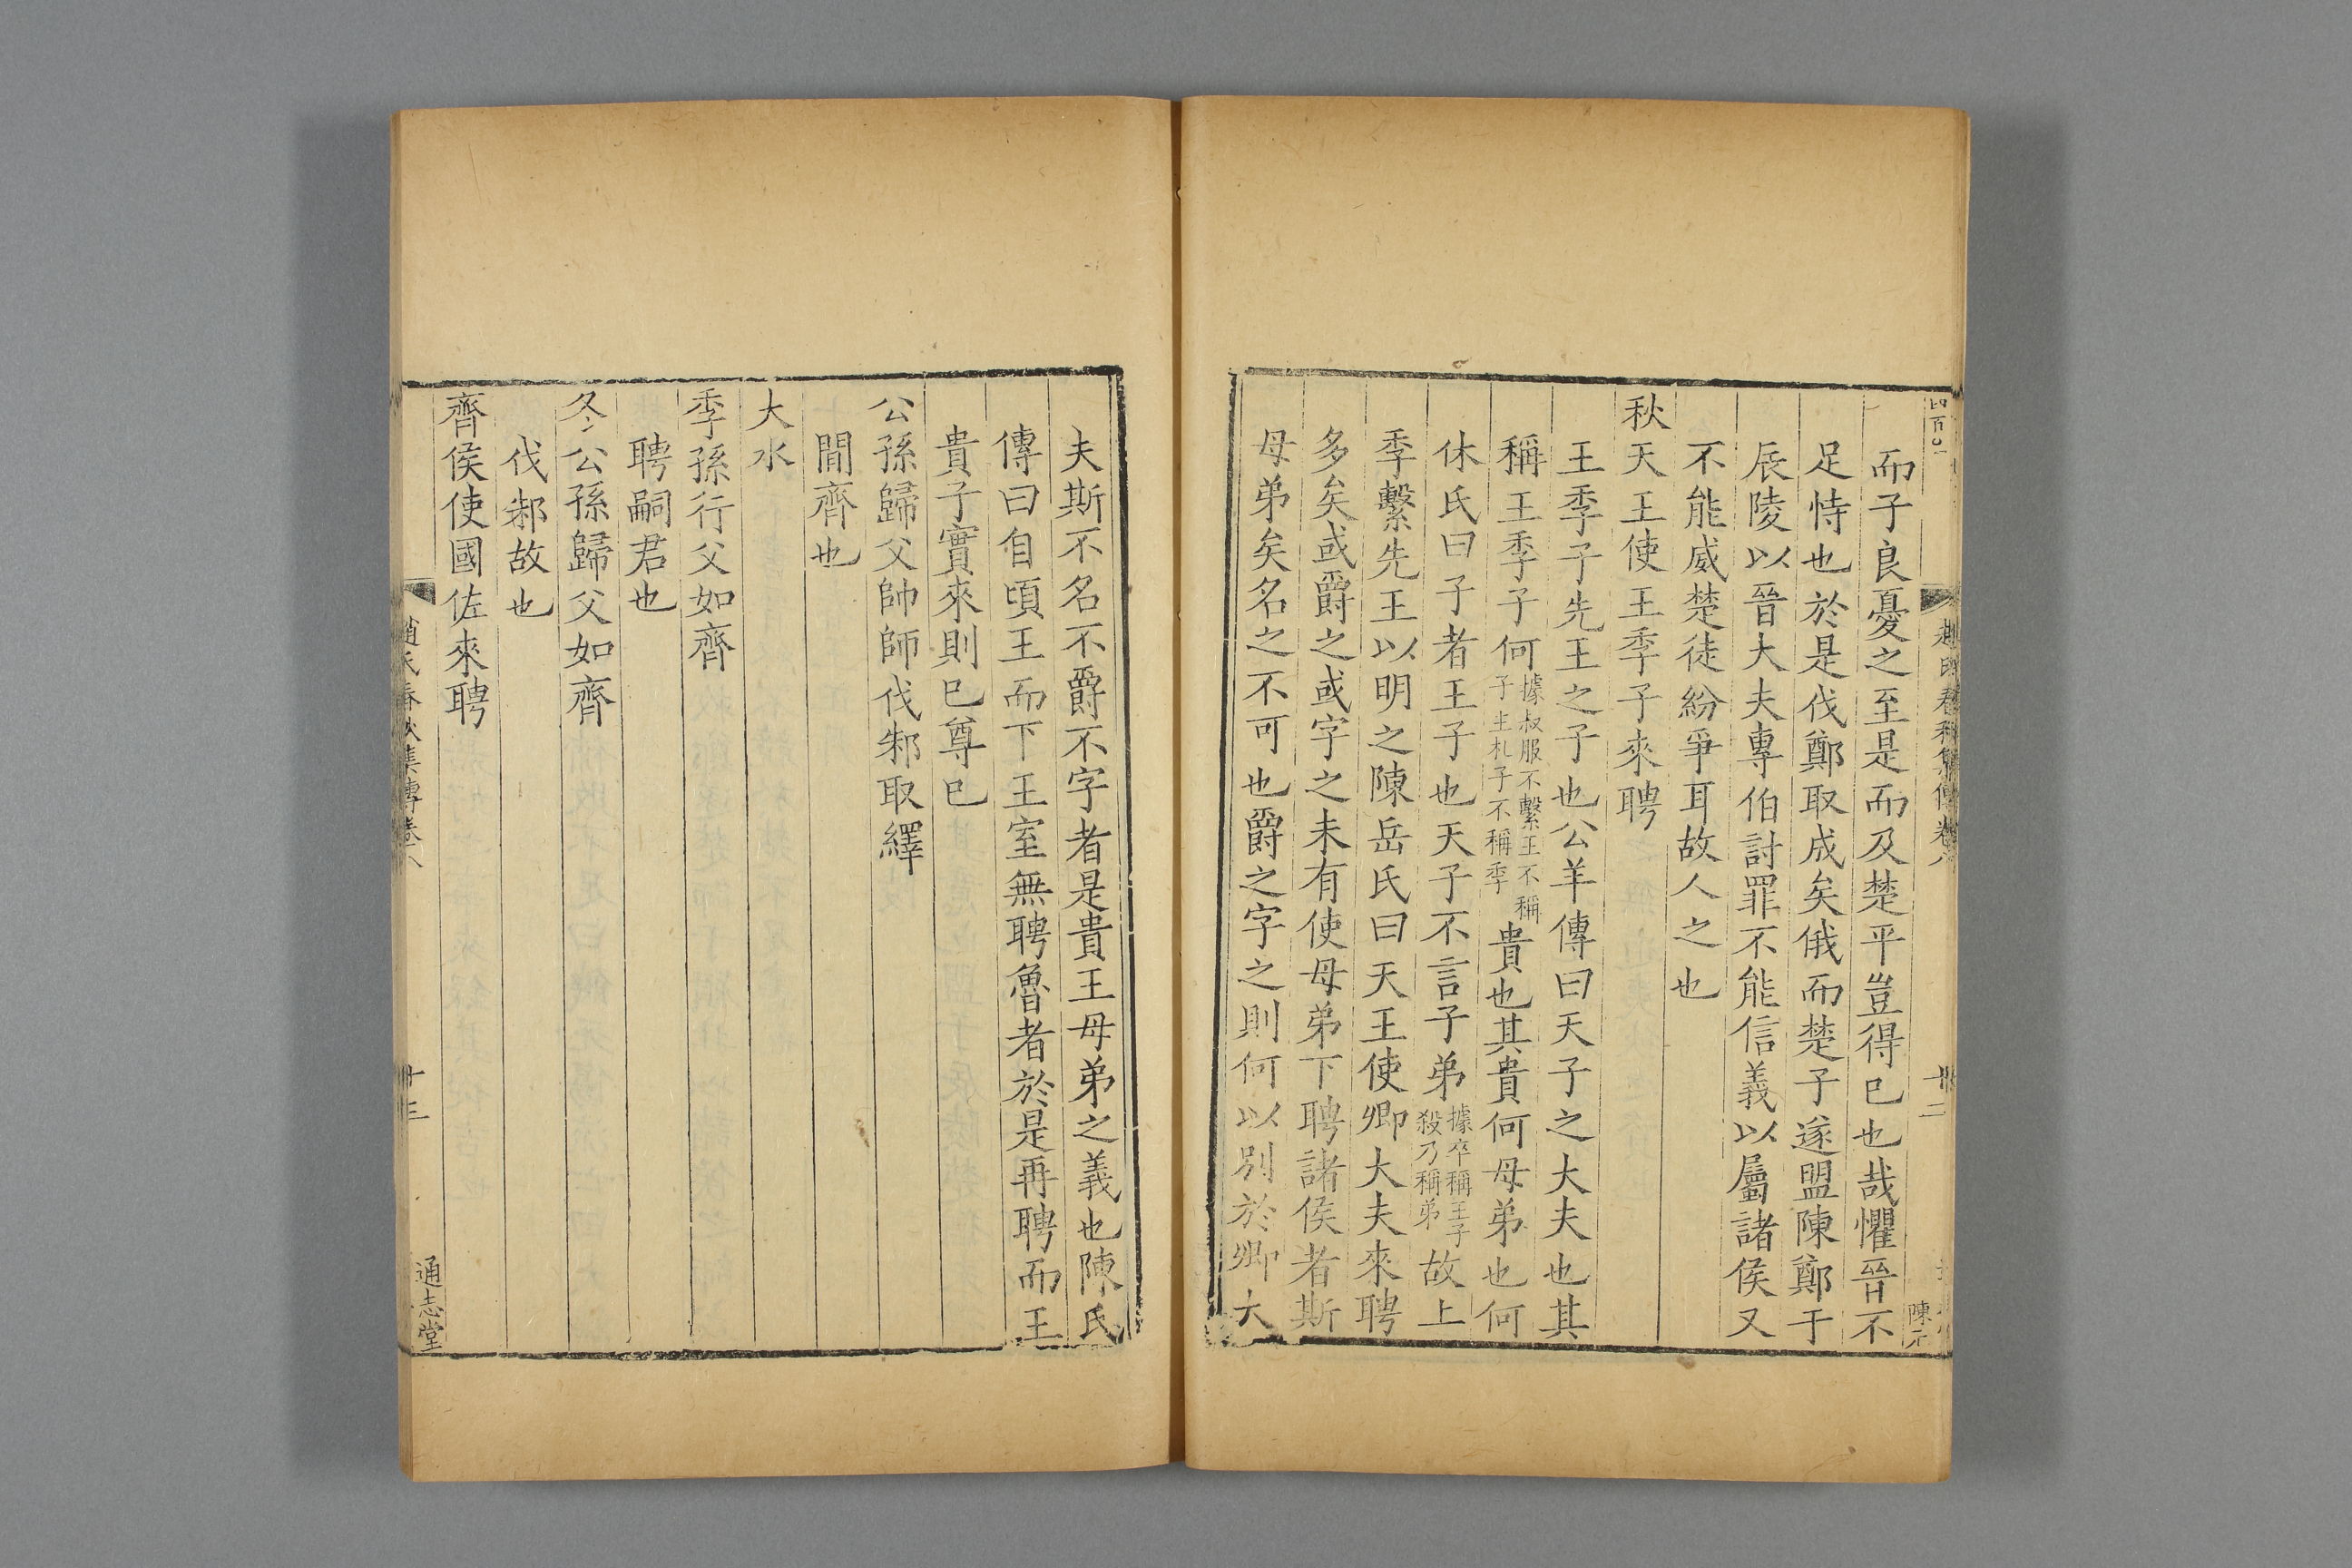 而子良憂之至是而及楚平豈得已也哉懼晉不
足恃也於是伐鄭取成矣俄而楚子遂盟陳鄭于
辰陵以晉大夫專伯討罪不能信義以屬諸侯又
不能威楚徒紛爭耳故人之也
秋天王使王季子來聘
王季子先王之子也公羊傳曰天子之大夫也其
稱王季子何據叔服不繫王不稱子王札子不稱季貴也其貴何母弟也何
休氏曰子者王子也天子不言子弟據卒稱王子殺乃稱弟故上
季繫先王以明之陳岳氏曰天王使卿大夫來聘
多矣或爵之或字之未有使母弟下聘諸侯者斯
母弟矣名之不可也爵之字之則何以別於卿大
夫斯不名不爵不字者是貴王母弟之義也陳氏
傳曰自頃王而下王室無聘魯者於是再聘而王
貴子實來則已尊已
公孫歸父帥師伐邾取繹
間齊也
大水
季孫行父如齊
聘嗣君也
冬公孫歸父如齊
伐邾故也
齊侯使國佐來聘
趙氏春秋集傳卷八
十三
通志堂